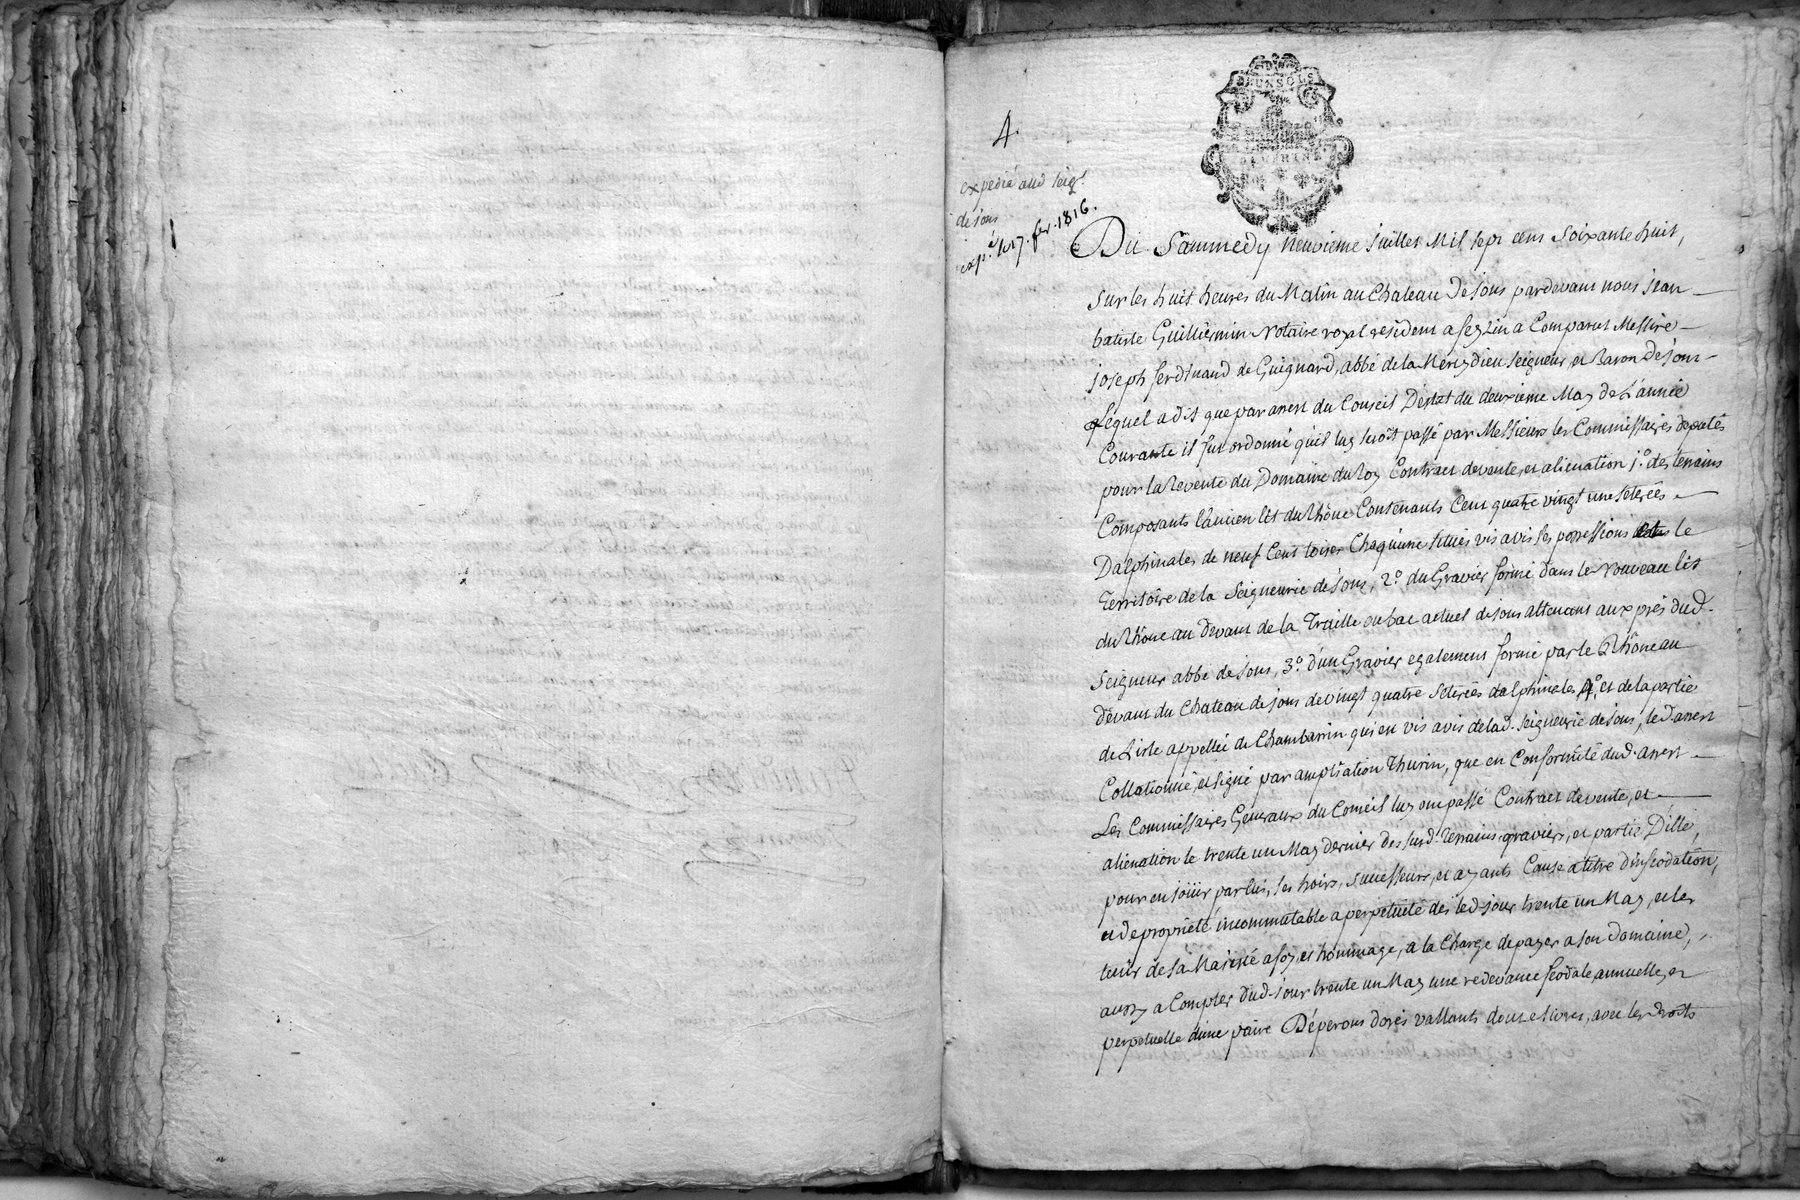 4.
DEUX SOLS
DAUPHINÉ
expedié aud seigr.
de jons
exp. le 17. fer. 1816.
Du Sammedy neuvieme juillet Mil sept cens soixante huit,
sur les huit heures du Matin au Chateau de jons pardevant nous jean
batiste Guilliermin Notaire royal resident a feyzin a Comparut Messire
joseph ferdinand de Guignard, abbé de la Mercydieu seigneur, et Baron de jons
lequel a dit que par arrest du Conseil D'estat du deuxieme May de L'année
Courante il fut ordonné quil luy seroit passé par Messieurs les Commissaires deputés
pour la revente du Domaine du roy Contract de vente, et alienation 1.º des terrains
Composants l'ancien lit du Rhône Contenants Cent quatre vingt une seterées
Dalphinales de neuf Cent toises Chaquune situés vis avis ses possessions le
Territoire de la seigneurie de jons, 2.º du Gravier formé dans le Nouveau lit
du Rhône au devant de la Traille ou bac actuel de jons attenant aux prés dud.
seigneur abbé de jons, 3.º d'un Gravier egalement formé par le Rhône au
devant du Chateau de jons de vingt quatre seterées dalphinales 4.º, et de la partie
de L'isle appellée de Chambarrin qui en vis avis de lad. seigneurie de jons, led. arrest
Collationné, et signé par ampliation Thurin, que en Conformité dud. arrest
Les Commissaires Generaux du Conseil luy ont passé Contract de vente, et
alienation le trente un May dernier des susd. terrains graviers, et partie D'ille,
pour en joüir par lui, ses hoirs, successeurs, et ayants Cause a titre d'infeodation,
et de proprieté incommutable a perpetuité dès led. jour trente un May, et les
tenir de sa Majesté a foy, et hommage, a la Charge de payer a son domaine,
aussy a Compter dud. jour trente un May une redevance feodale, annuelle, et
perpetuelle d'une paire D'éperons dorés vallants douze livres, avec les droits